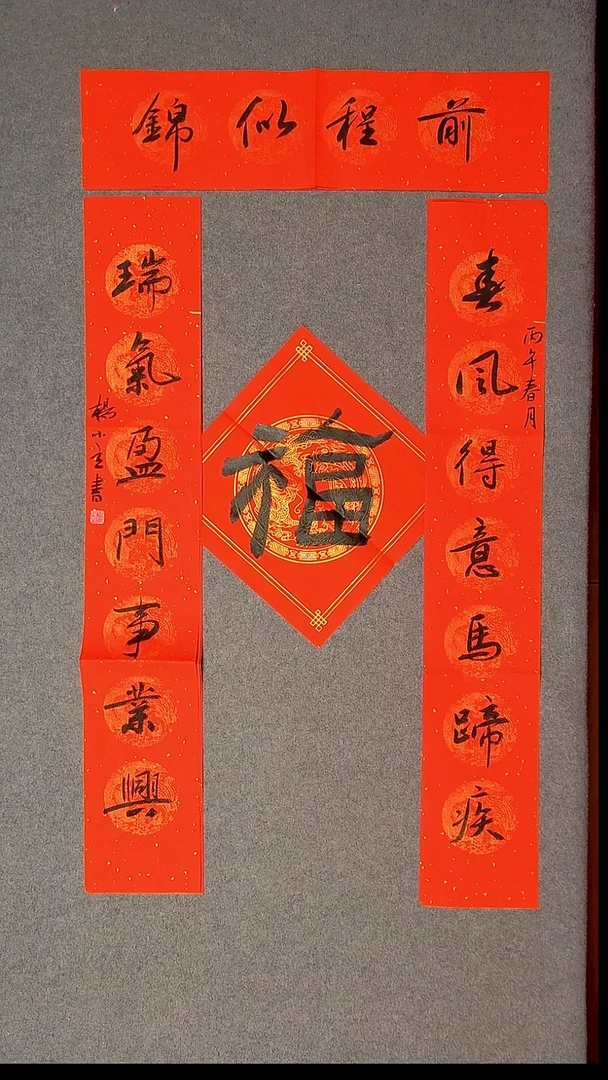 前程似錦
春風得意馬蹄疾
丙午春月
瑞氣盈門事業興
楊小
書
福